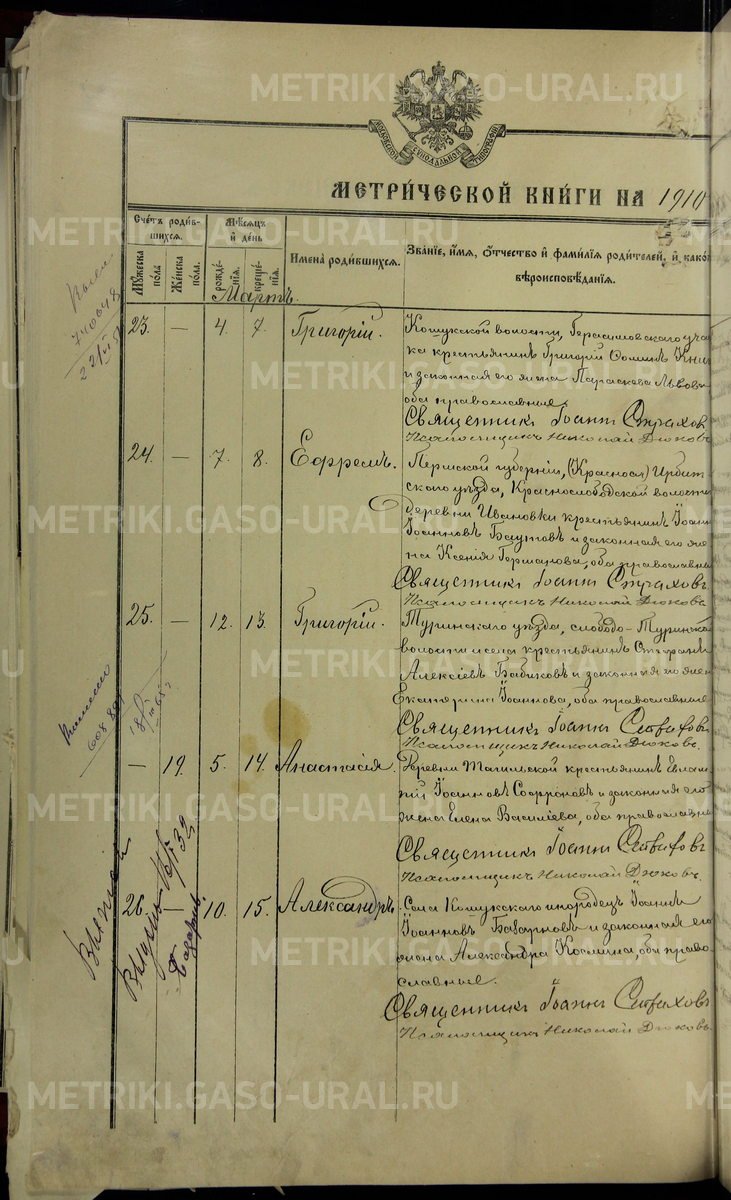 METRIKI.GASO-URAL.RU
МОСКОВСКОЙ СѴНОДАЛЬНОЙ ТИПОГРАФІИ
МЕТРИ́ЧЕСКОЙ КНИ́ГИ НА 1910
Сче́тъ роди́в-
шихся.
Му́жеска
по́ла
Же́нска
по́ла.
Мѣ́сяцъ
и҆ де́нь
рожде́-
нїѧ.
креще́-
нїѧ.
И҆мена̀ роди́вшихся.
Зва́нїе, и҆́мя, ѻ҆́тчество и҆ фами́лїя роди́телей, и҆ како́
вѣроисповѣ́данїѧ.
Мартъ.
23. — 4. 7. Григорій.
Кошукской волости, Герасимовского уча
ка крестьянинъ Григорій
и законная его жена Параскева Львова
оба православные.
Священникъ Іоаннъ Страховъ
Псаломщикъ Николай Дюковъ
24. — 7. 8. Ефремъ.
Пермской губерніи, (Красносл) Ирбит
ского уѣзда, Краснослободской волости
деревни Ивановки крестьянинъ Іоанн
Іоанновъ и законная его же
на Ксенія Германова, оба православны
Священникъ Іоаннъ Страховъ
Псаломщикъ Николай Дюковъ
25. — 12. 13. Григорій.
Туринского уѣзда, слободо-Туринской
волости и села крестьянинъ
Алексіевъ Бабиковъ и законная его жен
Екатерина Іоаннова, оба православные
Священникъ Іоаннъ Страховъ
Псаломщикъ Николай Дюковъ.
— 19. 5. 14. Анастасія.
Деревни Тагильской крестьянинъ Евлам
пій Іоанновъ Софроновъ и законная его
жена Елена Василіева, оба православны
Священникъ Іоаннъ Страховъ
Псаломщикъ Николай Дюковъ.
26 — 10. 15. Александръ
Села Кошукского инородецъ Іоаннъ
Іоанновъ и законная его
жена Александра Космина, оба право-
славные.
Священникъ Іоаннъ Страховъ
Псаломщикъ Николай Дюковъ